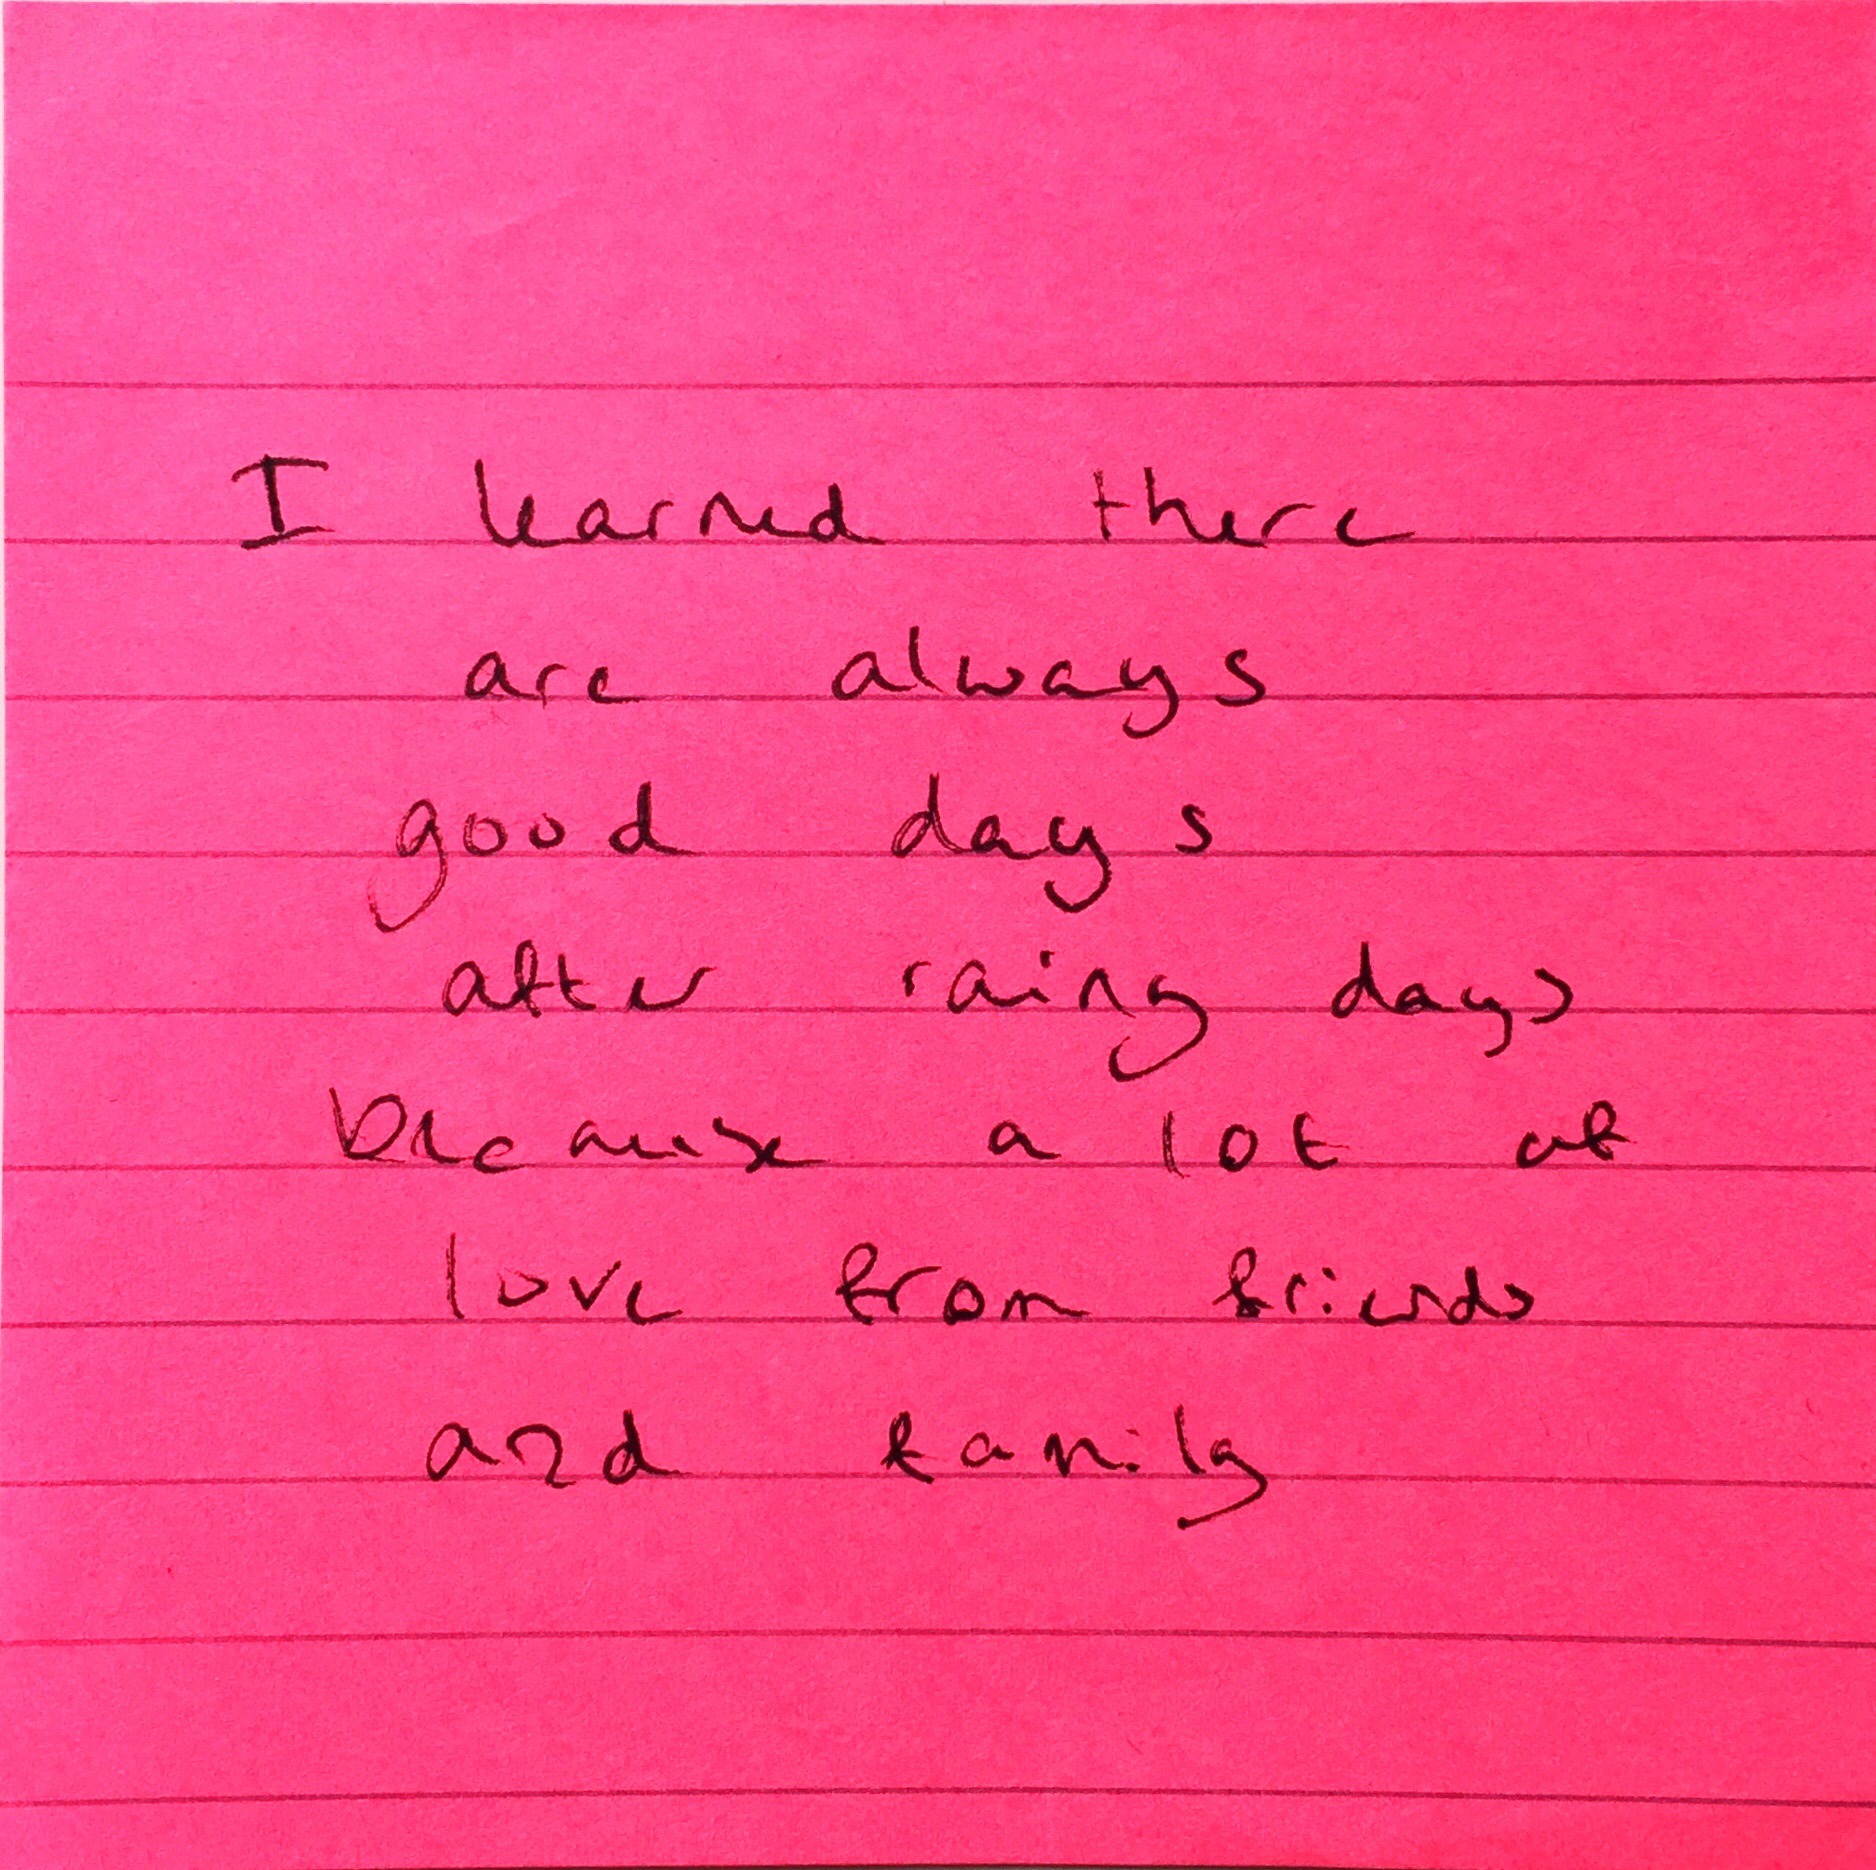 I learned there
are always
good days
after rainy days
because a lot of
love from friends
and family